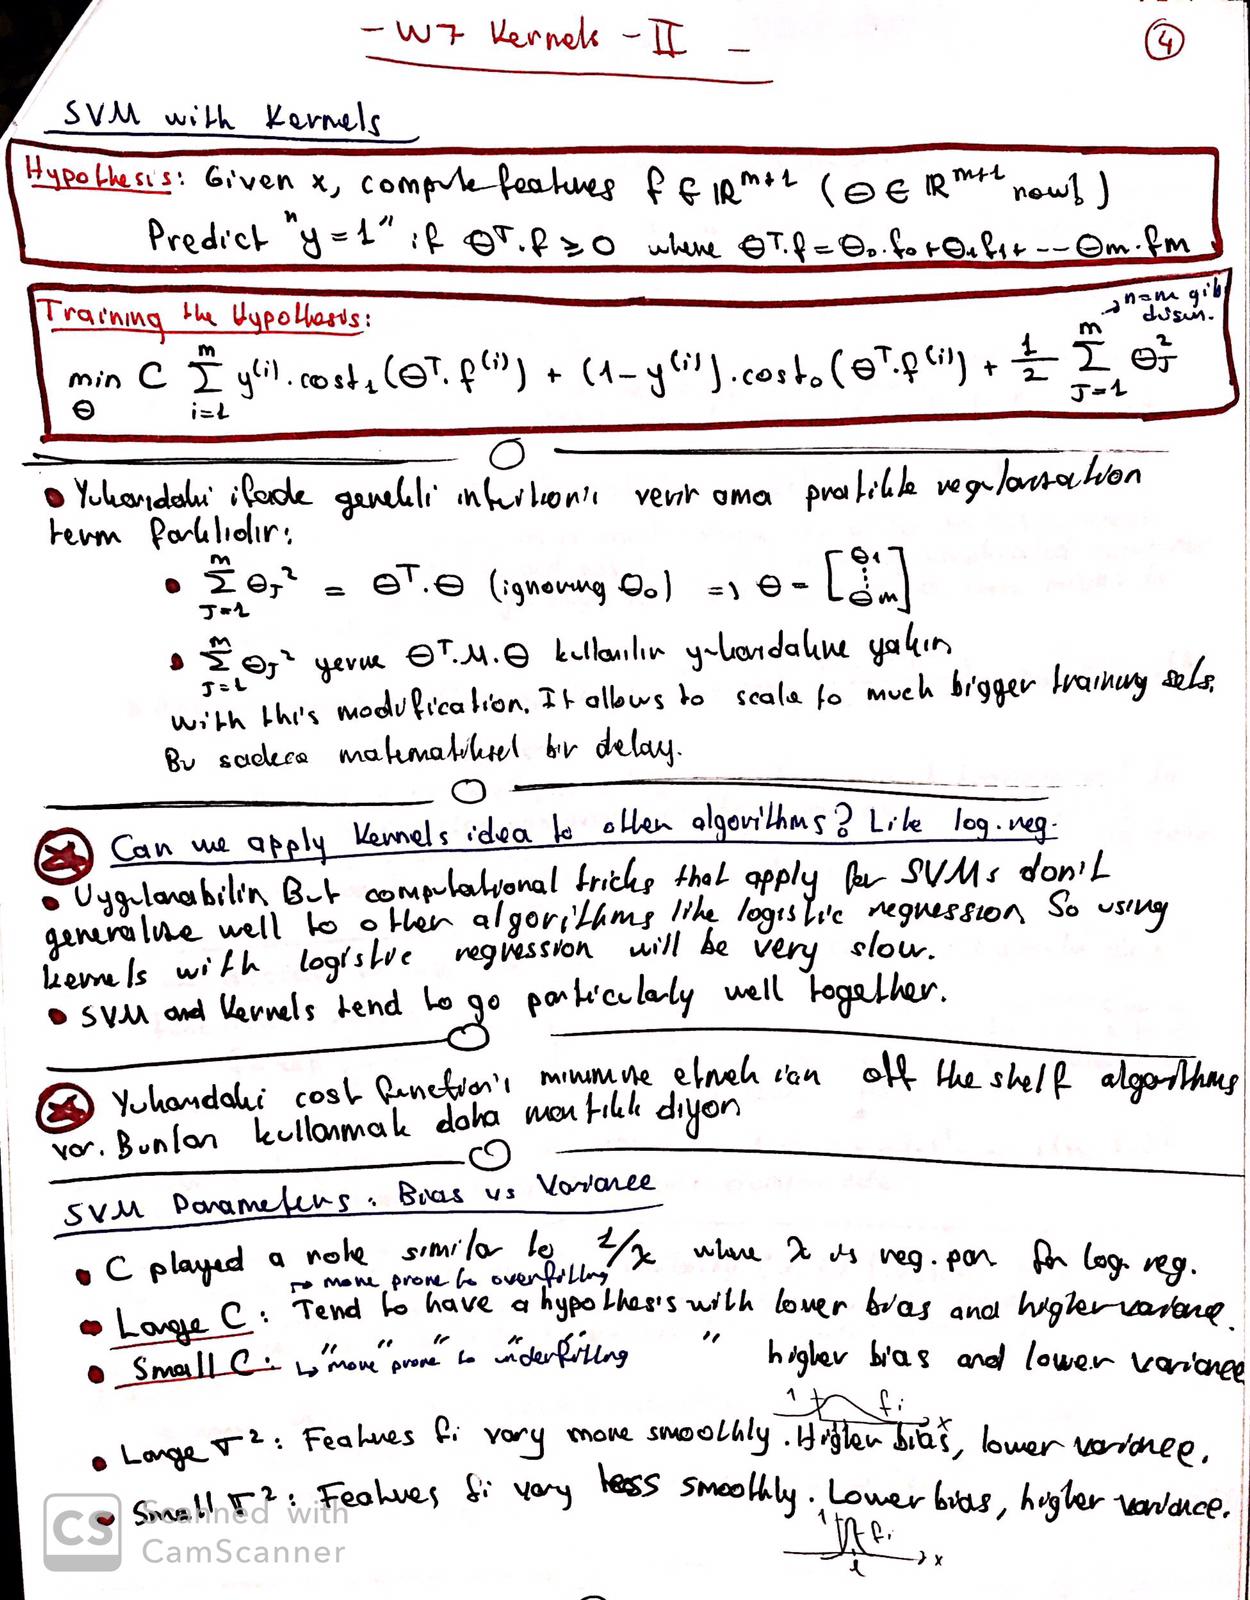 - W7 Kernels - II -
4
SVM with Kernels
Hypothesis: Given x, compute features f ∈ ℝ^(m+1) (Θ ∈ ℝ^(m+1) now!)
Predict "y=1" if Θ^T.f ≥ 0 where Θ^T.f = Θ₀.f₀+Θ₁f₁+--- Θm.fm
Training the Hypothesis:
→ n=m gibi
düşün.
min_Θ C Σ_(i=1)^m y^(i).cost₁(Θ^T.f^(i)) + (1-y^(i)).cost₀(Θ^T.f^(i)) + 1/2 Σ_(J=1)^m Θ_J²
• Yukarıdaki ifade gerekli intuition'ı verir ama pratikte regularisation
term farklıdır:
• Σ_(J=1)^m Θ_J² = Θ^T.Θ (ignoring Θ₀) => Θ = [Θ₁ ⋮ Θm]
• Σ_(J=1)^m Θ_J² yerine Θ^T.M.Θ kullanılır yukarıdakine yakın
With this modification. It allows to scale to much bigger training sets.
Bu sadece matematiksel bir detay.
Can we apply Kernels idea to other algorithms? Like log.reg.
• Uygulanabilir. But computational tricks that apply for SVMs don't
generalise well to other algorithms like logistic regression. So using
kernels with logistic regression will be very slow.
• SVM and Kernels tend to go particularly well together.
Yukarıdaki cost function'ı minimize etmek için off the shelf algorithms
var. Bunları kullanmak daha mantıklı diyor
SVM Parameters: Bias vs Variance
• C played a role similar to 1/λ where λ is reg. par for log. reg.
→ more prone to overfitting
• Large C: Tend to have a hypothesis with lower bias and higher variance.
• Small C: " " " " " higher bias and lower variance
↳ more prone to underfitting
1 fi x
• Large σ²: Features fi vary more smoothly. Higher bias, lower variance.
• Small σ²: Features fi vary less smoothly. Lower bias, higher variance.
1 fi
l x
CS Scanned with
CamScanner